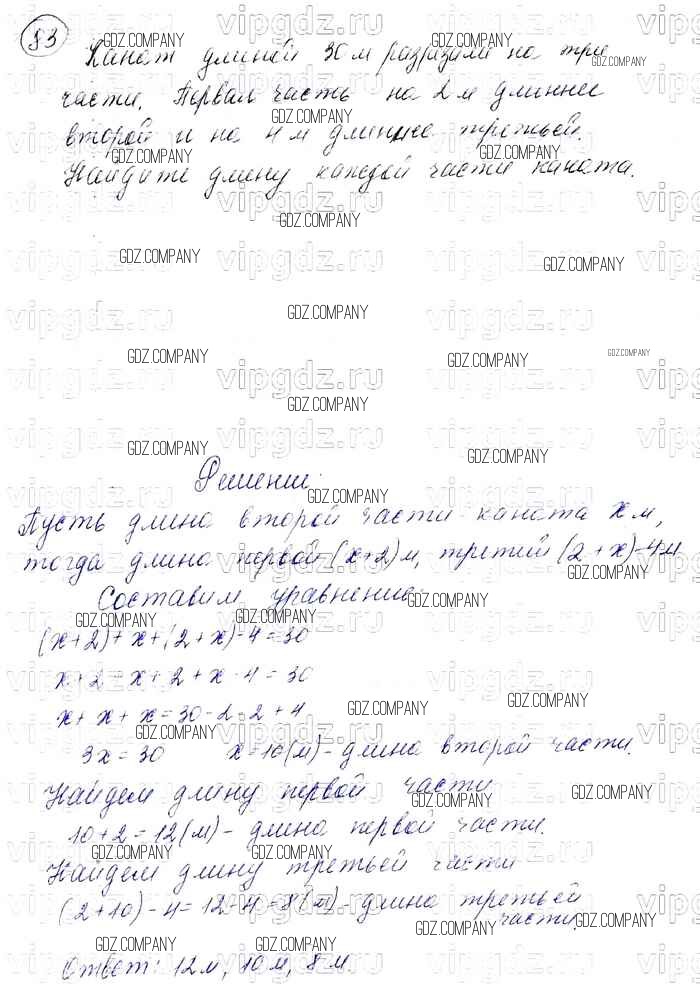 83
Канат длиной 30 м разрезали на три
части. Первая часть на 2 м длиннее
второй и на 4 м длиннее третьей.
Найдите длину каждой части каната.
Решение.
Пусть длина второй части каната x м,
тогда длина первой (x+2) м, третий (2+x)-4 м
Составим уравнение.
(x+2)+x+(2+x)-4=30
x+2+x+2+x-4=30
x+x+x=30-2-2+4
3x=30 x=10(м)-длина второй части.
Найдем длину первой части
10+2=12(м)-длина первой части.
Найдем длину третьей части
(2+10)-4=12-4=8(м)-длина третьей
части.
Ответ: 12м, 10м, 8м.
GDZ.COMPANY
vipgdz.ru